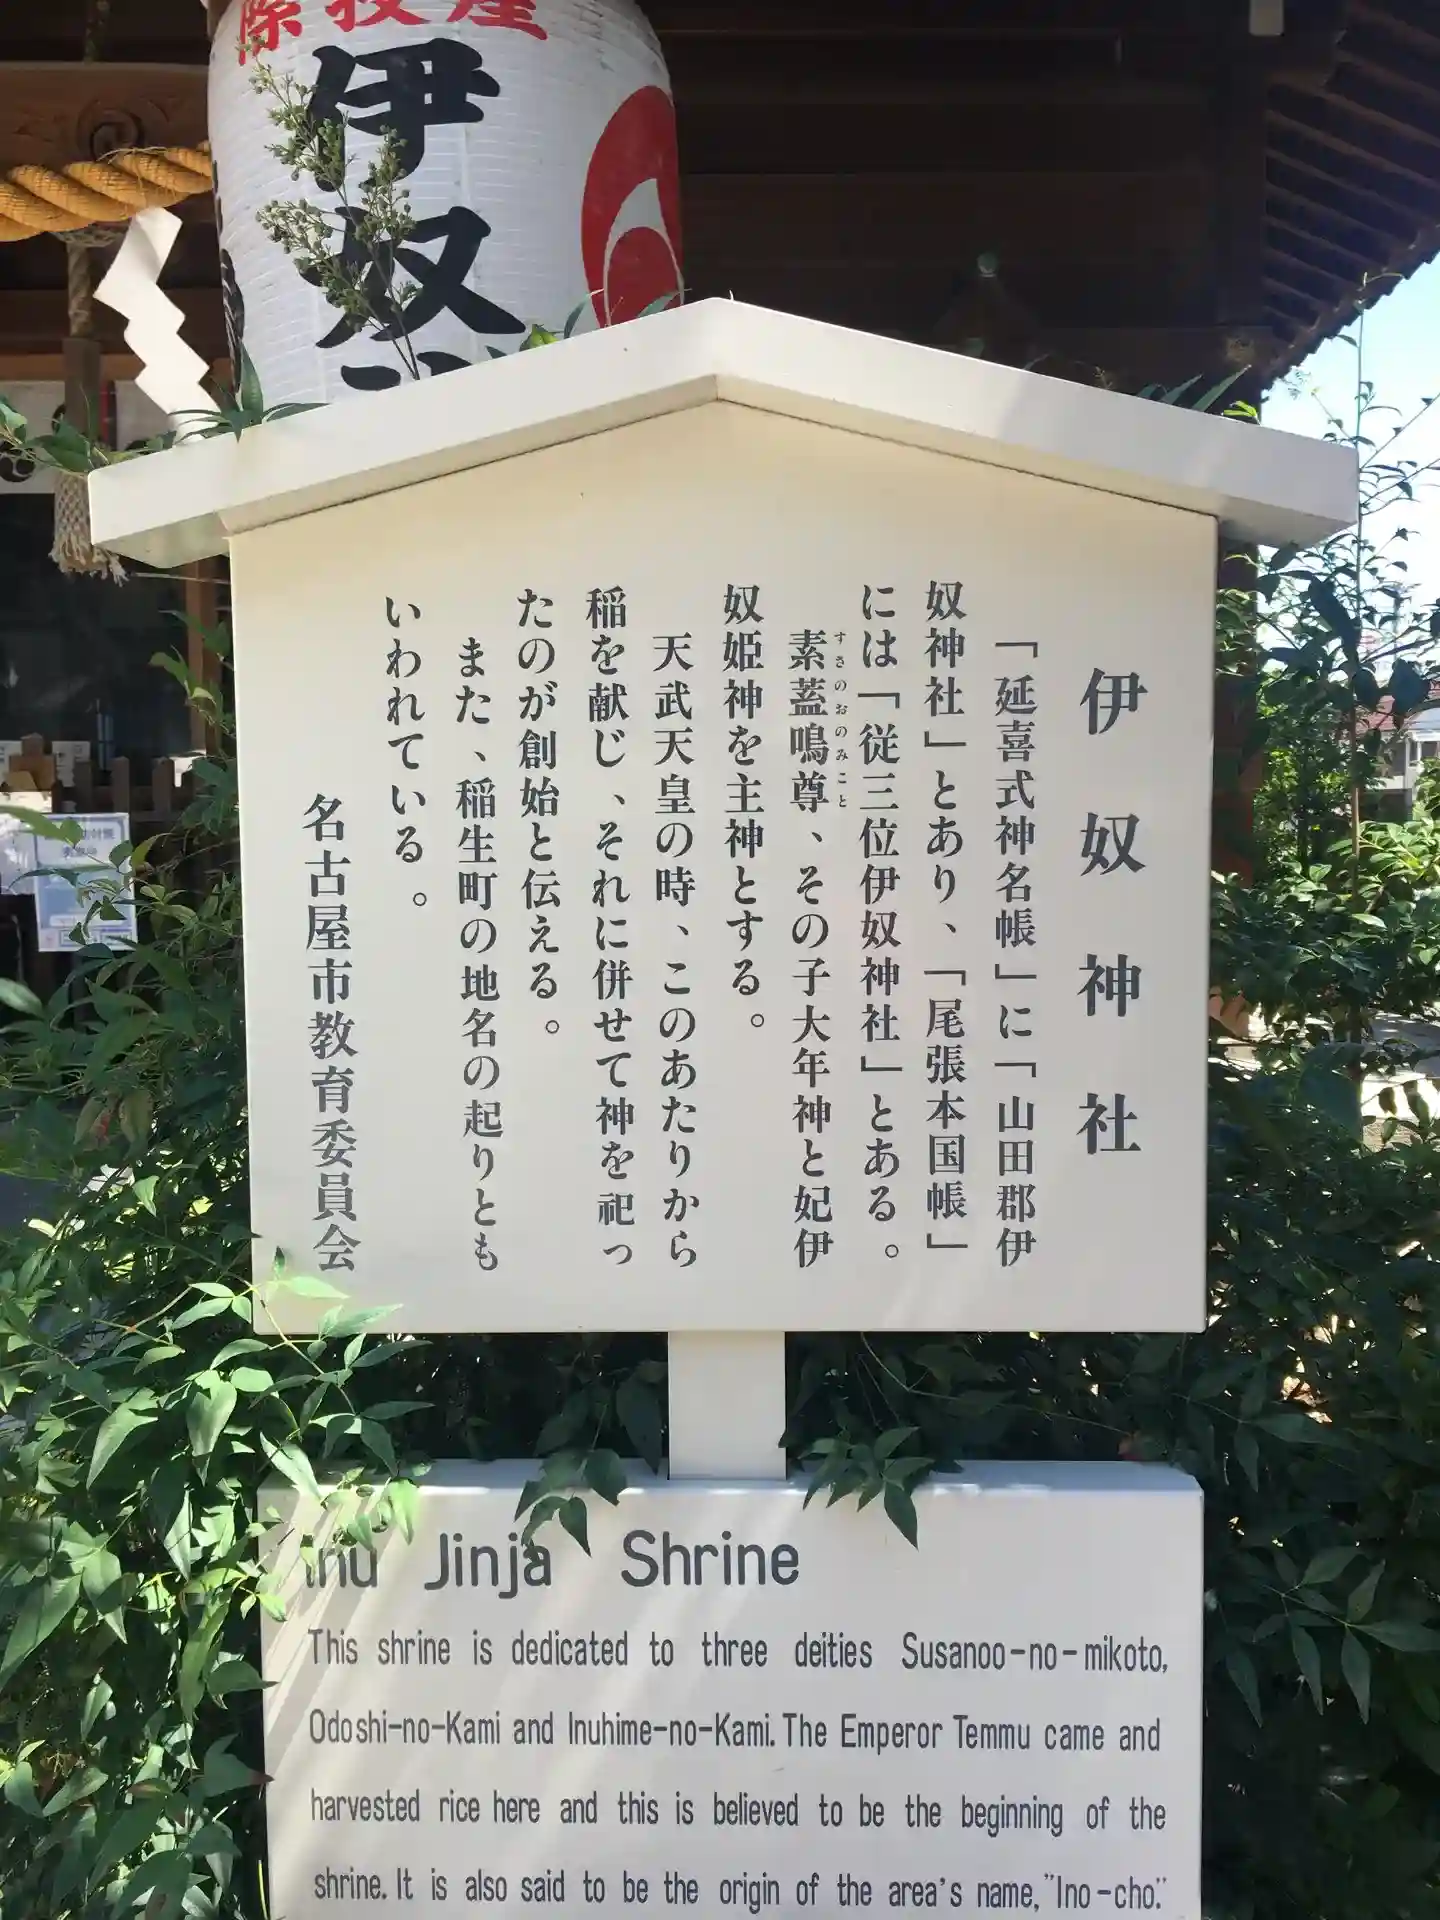 伊奴
伊奴神社
「延喜式神名帳」に「山田郡伊
奴神社」とあり、「尾張本国帳」
には「従三位伊奴神社」とある。
素蓋鳴尊、その子大年神と妃伊
すさのおのみこと
奴姫神を主神とする。
天武天皇の時、このあたりから
稲を献じ、それに併せて神を祀っ
たのが創始と伝える。
また、稲生町の地名の起りとも
いわれている。
名古屋市教育委員会
Inu Jinja Shrine
This shrine is dedicated to three deities Susanoo-no-mikoto,
Odoshi-no-Kami and Inuhime-no-Kami. The Emperor Temmu came and
harvested rice here and this is believed to be the beginning of the
shrine. It is also said to be the origin of the area's name, "Ino-cho."